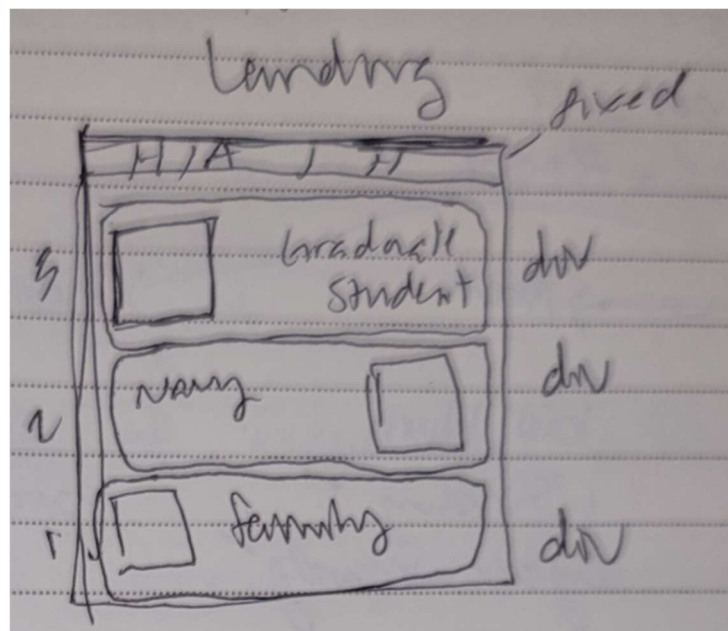 Landing
fixed
H / A / H
3
Graduate
Student
div
2
Navy
div
1
family
div